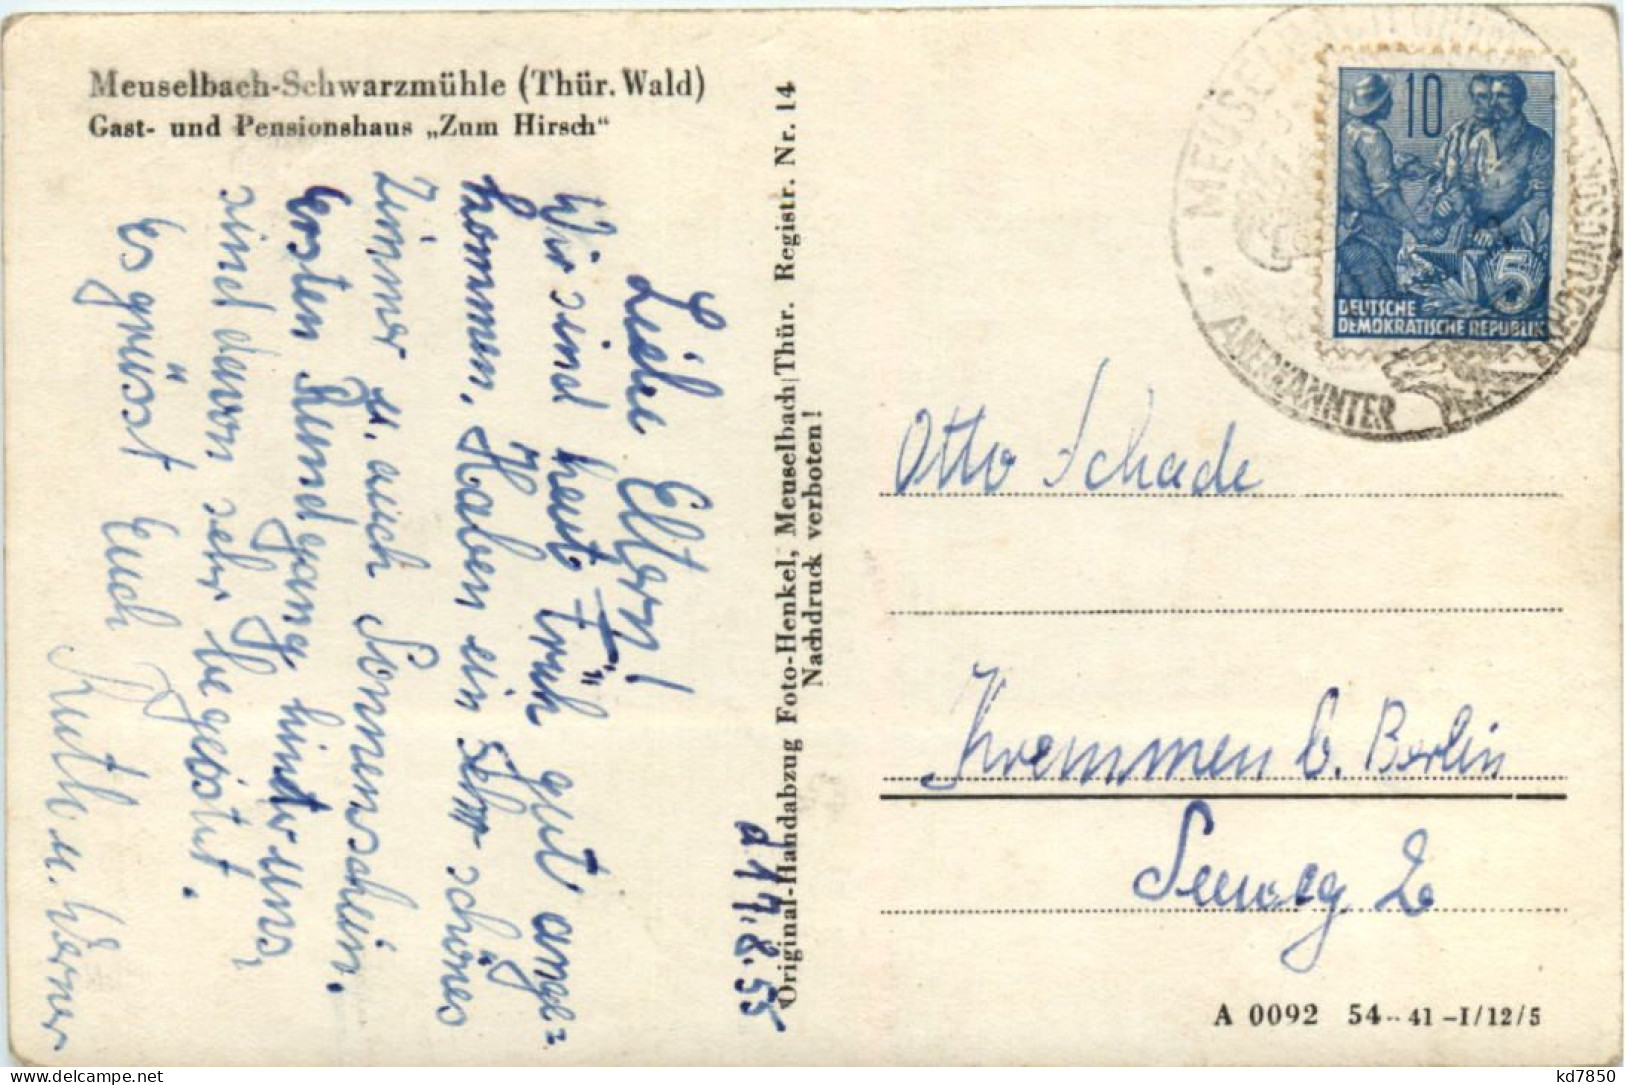 Meuselbach-Schwarzmühle (Thür. Wald)
Gast- und Pensionshaus „Zum Hirsch“
d 17.8.55
Liebe Eltern!
Wir sind heut früh gut ange=
kommen. Haben ein sehr schönes
Zimmer u. auch Sonnenschein.
Ersten Rundgang hinter uns,
sind davon sehr begeistert.
Es grüsst Euch
Ruth u. Werner
Original-Handabzug Foto-Henkel, Meuselbach/Thür. Registr. Nr. 14
Nachdruck verboten!
MEUSELBACH
ANERKANNTER
10
5
DEUTSCHE
DEMOKRATISCHE REPUBLIK
Otto Schade
Kremmen b. Berlin
Seeweg 2
A 0092 54-41-I/12/5
kd7850